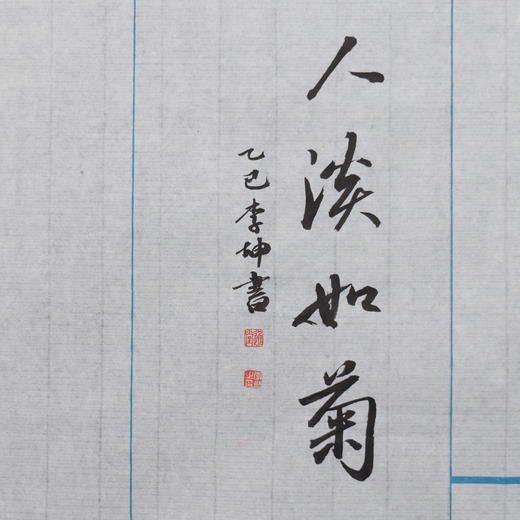 人淡如菊
乙巳李坤書